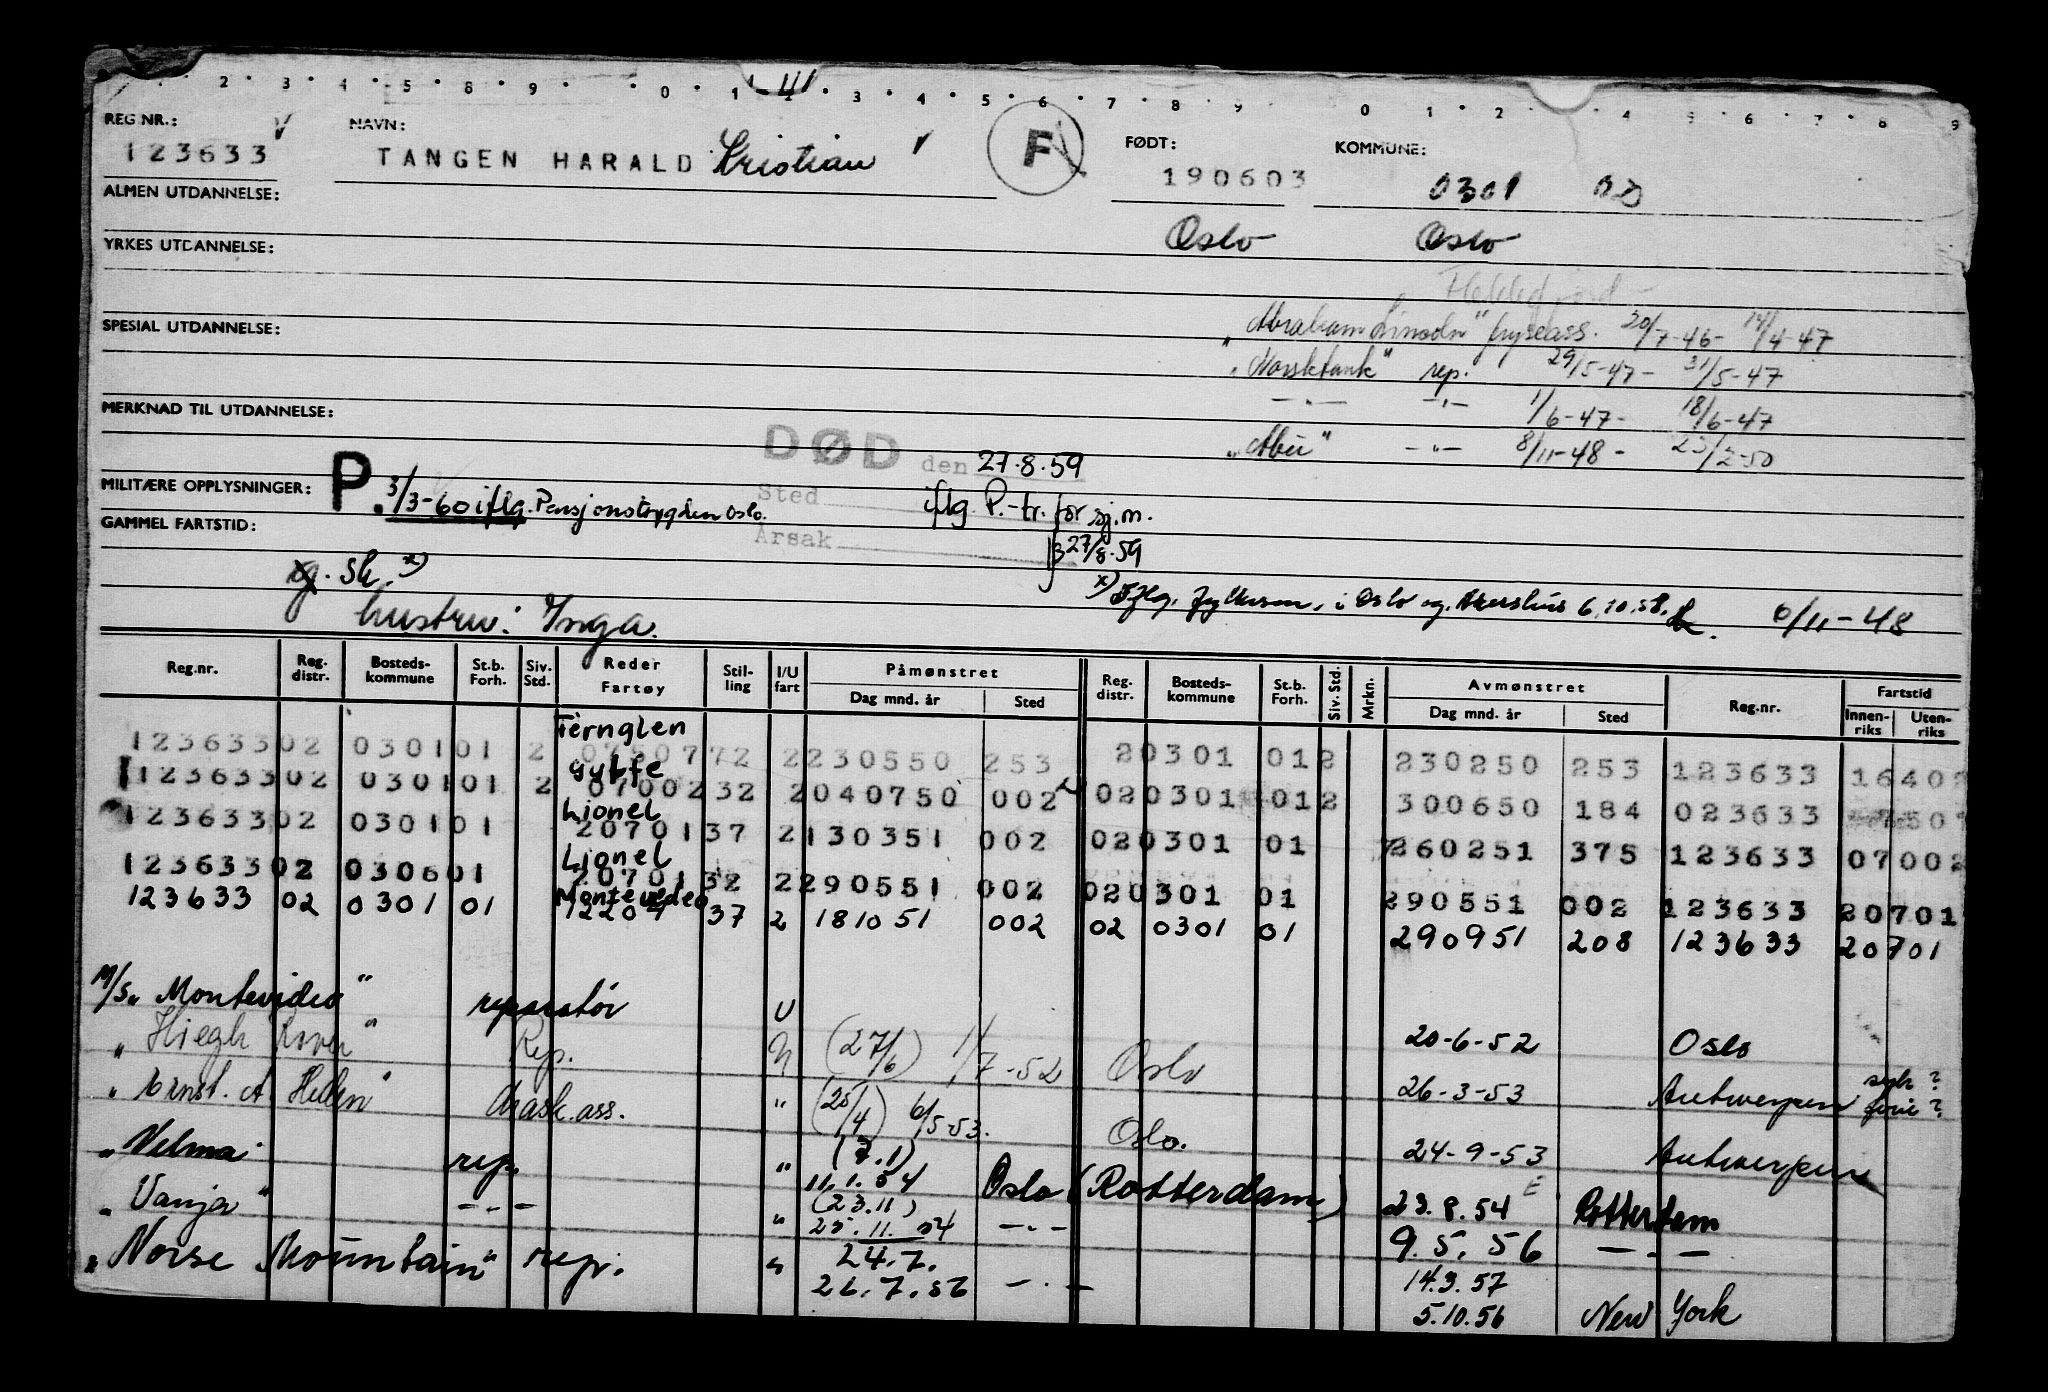 2 3 4 5 8 9 0 1 3 4 5 6 7 8 9 0 1 2 4 5 6 7 8 9
REG.NR.: NAVN: FØDT: KOMMUNE:
123633 TANGEN HARALD Kristian F 190603 0301 02
ALMEN UTDANNELSE: Oslo Oslo
YRKES UTDANNELSE:
"Abraham Lincoln" fryseass. 20/7-46- 14/4-47
SPESIAL UTDANNELSE:
"Norsktank" rep. 29/5-47- 31/5-47
-"- -"- 1/6-47- 18/6-47
MERKNAD TIL UTDANNELSE:
"Abu" -"- 8/11-48- 23/2-50
DØD den 27.8.59
MILITÆRE OPPLYSNINGER: P. 3/3-60 iflg. Pensjonstrygden Oslo.
Sted iflg P.-tr. for sj.m.
GAMMEL FARTSTID: Årsak 27/8-59
sk. x)
x) Iflg. fylkesm. i Oslo og Akershus 6.10.58. 6/11-48
hustru: Inga.
Reg.nr. Reg. distr. Bosteds- kommune St.b. Forh. Siv. Std. Reder Fartøy Stil- ling I/U fart Påmønstret Dag mnd. år Sted Reg. distr. Bosteds- kommune St.b. Forh. Siv. Std. Mrkn. Avmønstret Dag mnd. år Sted Reg.nr. Fartstid Innen- riks Uten- riks
Fernglen
123633 02 0301 01 2 0750772 2 230550 253 2 0301 01 2 230250 253 123633 16402
Gylfe
123633 02 0301 01 2 0700232 2 040750 002 02 0301 01 2 300650 184 023633
Lionel
123633 02 0301 01 2070137 2 130351 002 02 0301 01 260251 375 123633 07002
Lionel
123633 02 0306 01 2070132 2 290551 002 02 0301 01 290551 002 123633 20701
Montevideo
123633 02 0301 01 12204 37 2 181051 002 02 0301 01 290951 208 123633 20701
M/S "Montevideo" reparatør U 20-6-52 Oslo
" Høegh Rover" Rep. U (27/6) 1/7-52 Oslo 26-3-53 Antwerpen syk? ferie?
" Ernst. A. Hellen" Mask. ass. " (25/4) 6/5-53. Oslo. 24-9-53 Antwerpen
"Velma" rep. " (7.1) 11.1.54 Oslo (Rotterdam) 23.8.54 Rotterdam
"Vanja" -"- " (23.11) 25.11.54 -"- 9.5.56 -"-
"Norse Mountain" rep. " 24.7. 26.7.56 -"- 14.3.57
5.10.56 New York